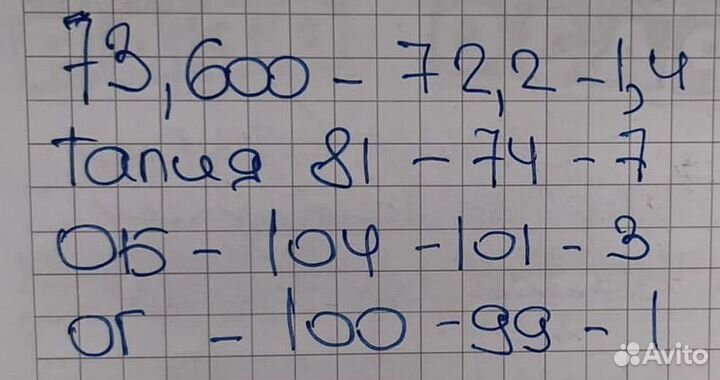 73,600 - 72,2 - 1,4
талия 81 - 74 - 7
ОБ - 104 - 101 - 3
ОГ - 100 - 99 - 1
Avito